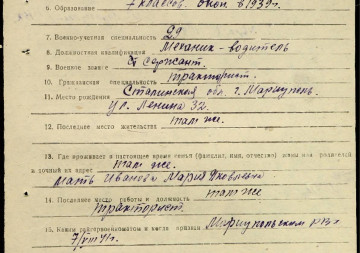 6. Образование 7 классов. окон. в 1939 г.
7. Военно-учетная специальность 29
8. Должностная квалификация Механик-водитель
9. Воинское звание Ст сержант.
10. Гражданская специальность тракторист.
11. Место рождения Сталинская обл. г. Мариуполь.
ул. Ленина 32.
12. Последнее место жительства там же.
13. Где проживает в настоящее время семья (фамилия, имя, отчество) жены или родителей
и точный их адрес там же.
мать Иванова Мария Яковлевна
14. Последнее место работы и должность там же
тракторист.
15. Каким райгорвоенкоматом и когда призван Мариупольским РВК
7/VIII 41 г.